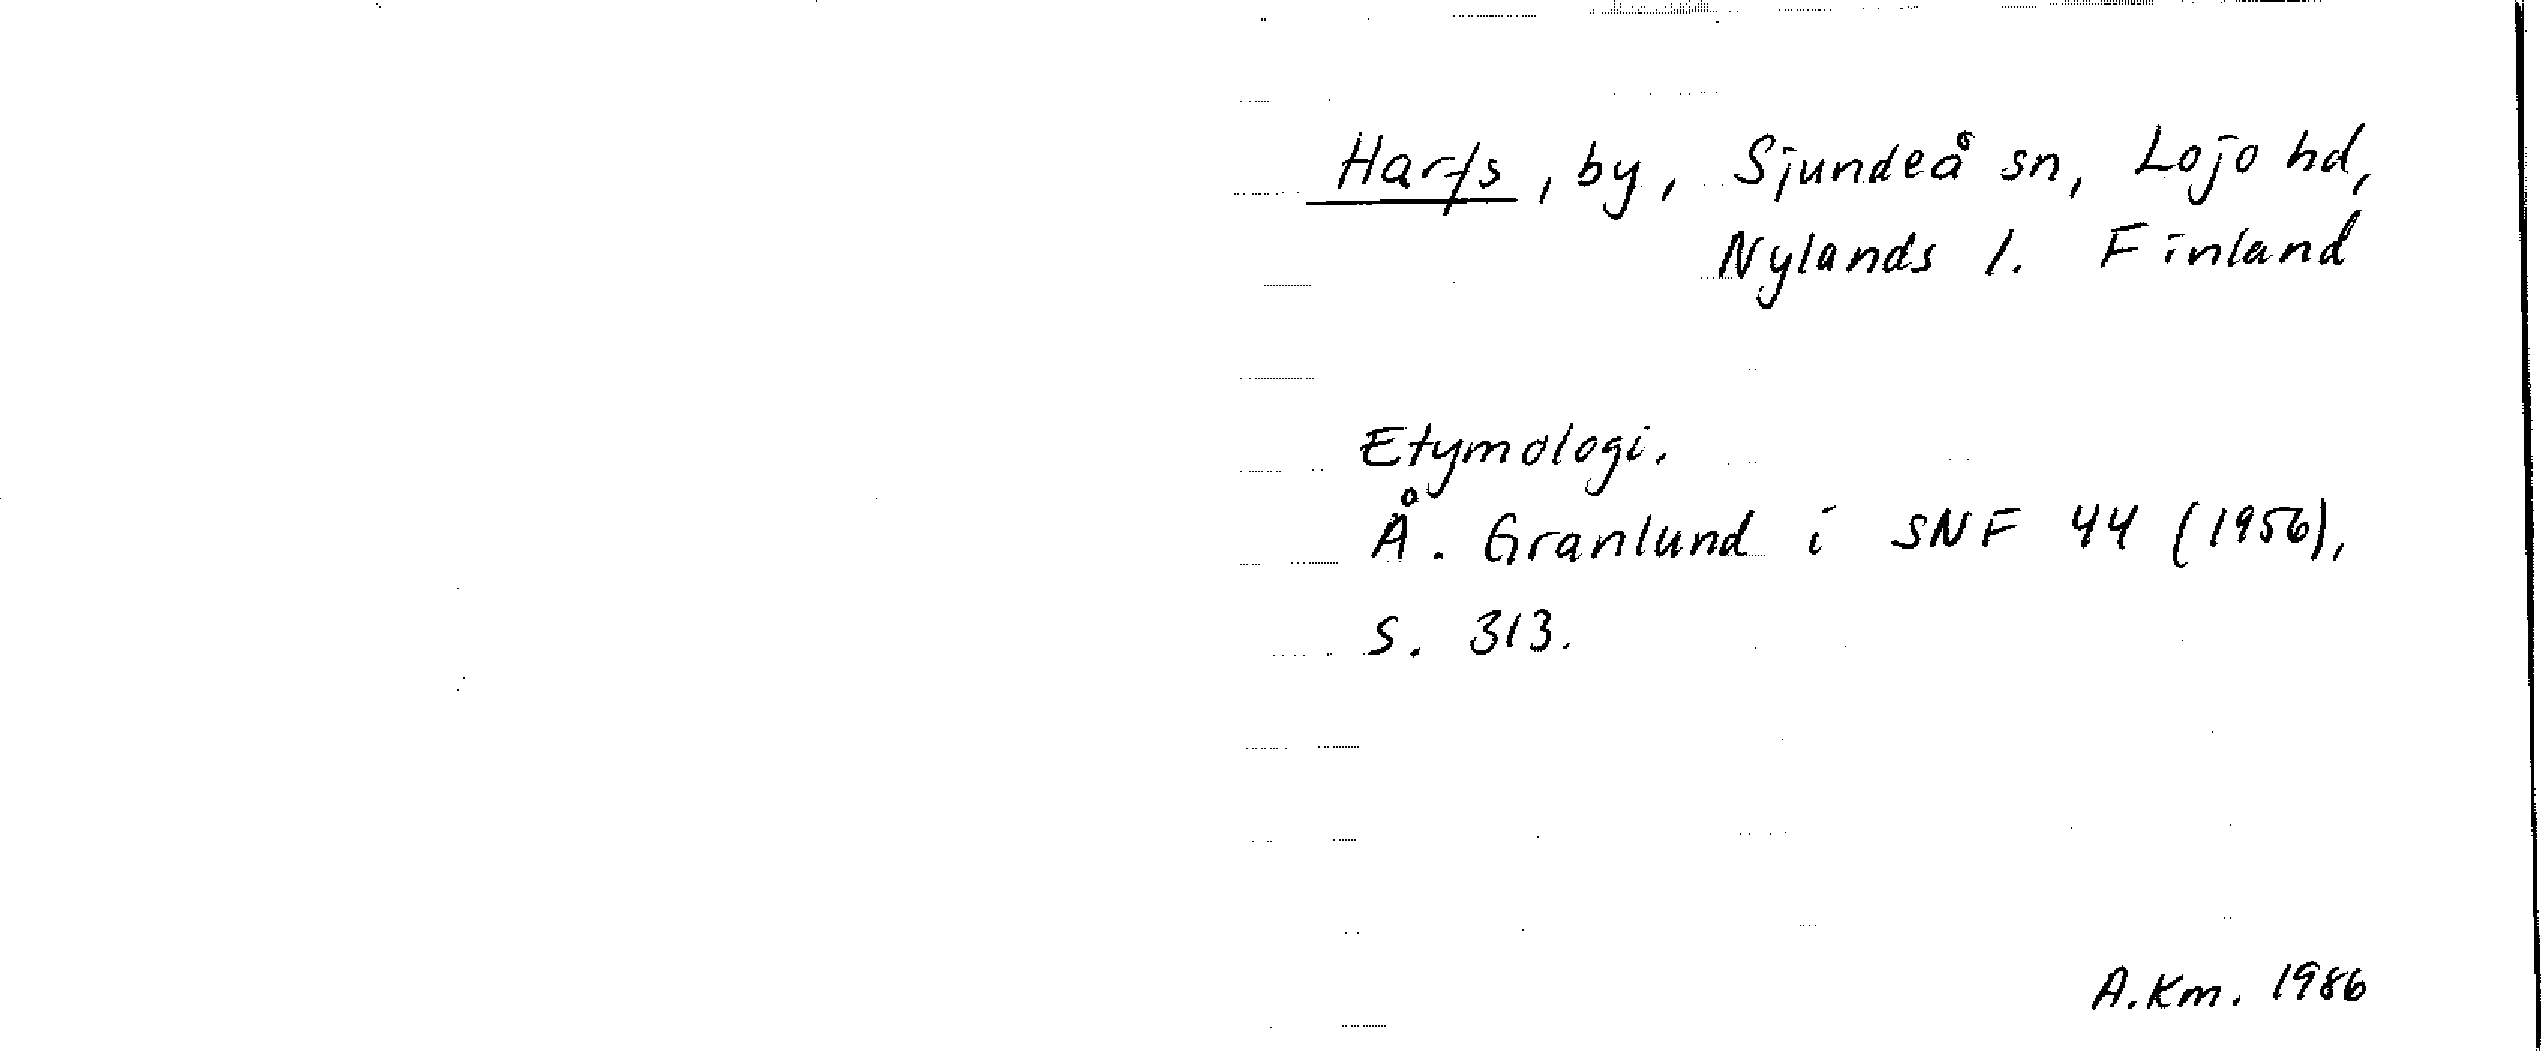 Harfs, by, Sjundeå sn, Lojo hd,
Nylands l. Finland
Etymologi.
Å. Granlund i SNF 44 (1956),
s. 313.
A.Km. 1986